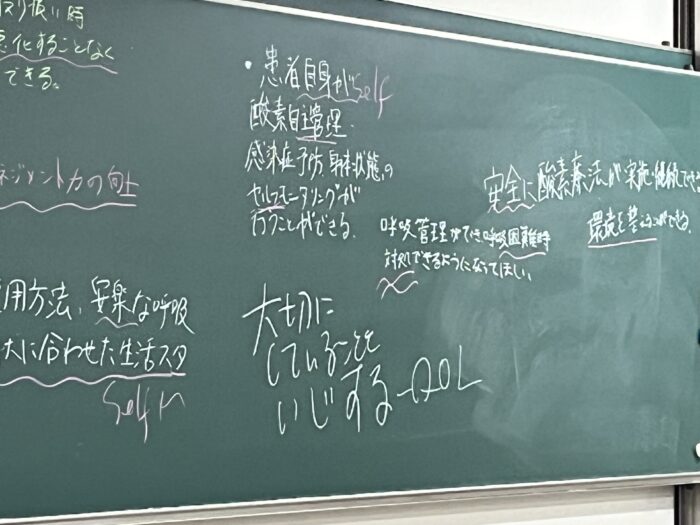 り扱い時
悪化することなく
できる。
ネジメント力の向上
用方法、安楽な呼吸
に合わせた生活スタ
Self M
・患者自身が Self
酸素自主管理
感染症予防、身体状態の
セルフモニタリングが
行うことができる。
呼吸管理ができ呼吸困難時
対処できるようになってほしい。
大切に
していることを
いじする-QOL
安全に酸素療法が実施・継続できる
環境を整えることができる。